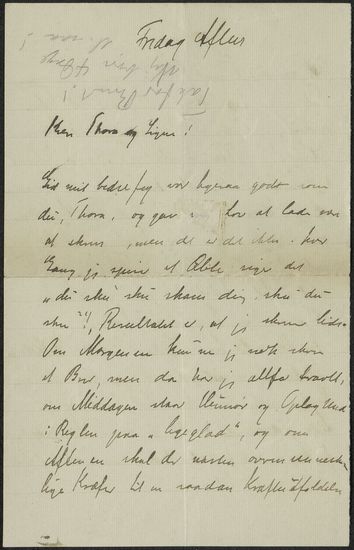 Fredag Aften
Tak for Brevet!
Kære Thora og Signe!
Gid mit bedre jeg var ligesaa godt som
du, Thora, og gav mig lov at lade være
at skrive, men det er det ikke. hver
Gang jeg spiser et Æble siger det
"du sku' sku' skamme dig, sku' du
sku'"!, Resultatet er, at jeg skriver
Om Morgenen kunne jeg nok skrive
et Brev, men da har jeg altfor travlt,
om Middagen staar Humør og Oplagthed
i Reglen paa "ligeglad", og om
Aftenen skal der næsten overmenneske-
lige Kræfter til en saadan Kraftudfoldelse